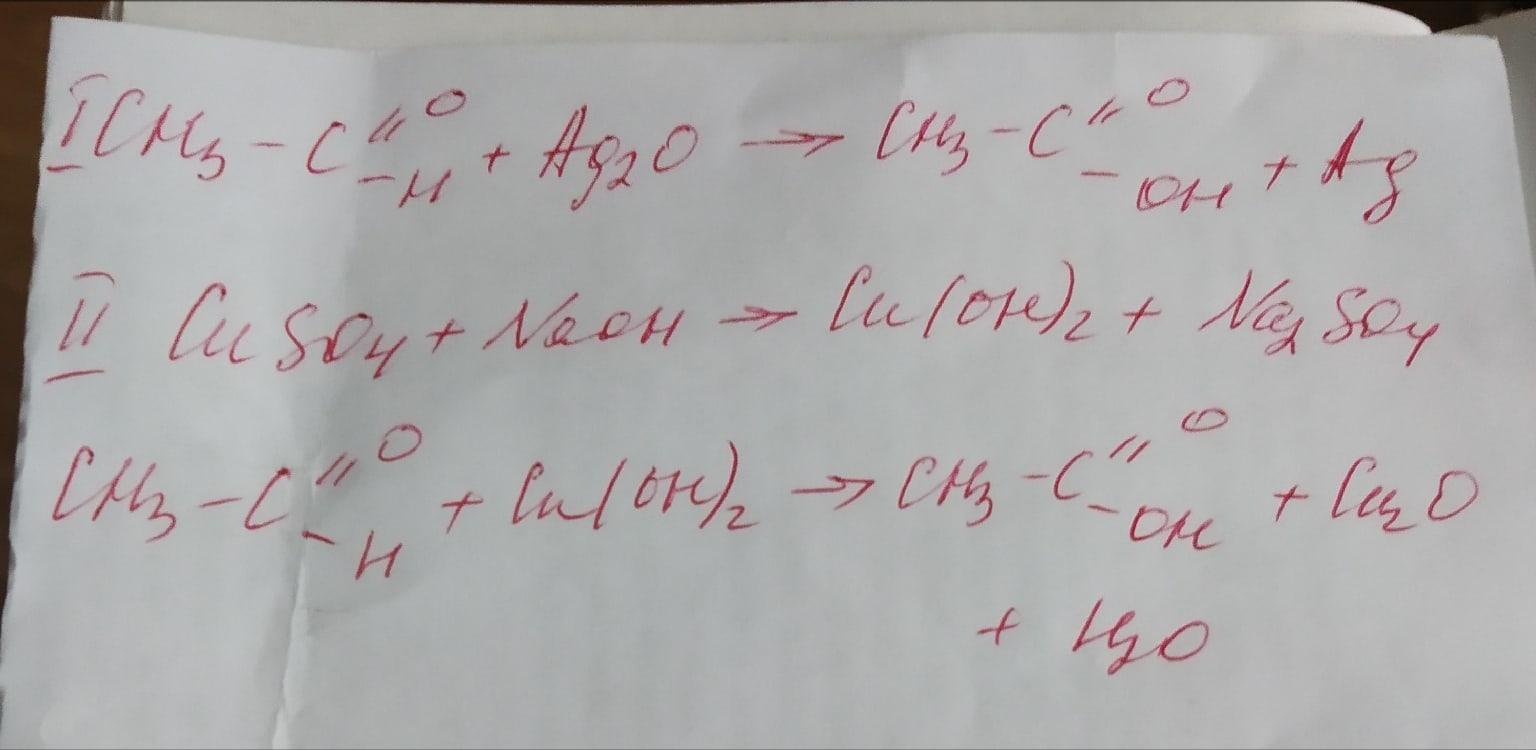 I CH3 - C =O -H + Ag2O → CH3 - C =O -OH + Ag
II CuSO4 + NaOH → Cu(OH)2 + Na2SO4
CH3 - C =O -H + Cu(OH)2 → CH3 - C =O -OH + Cu2O
+ H2O